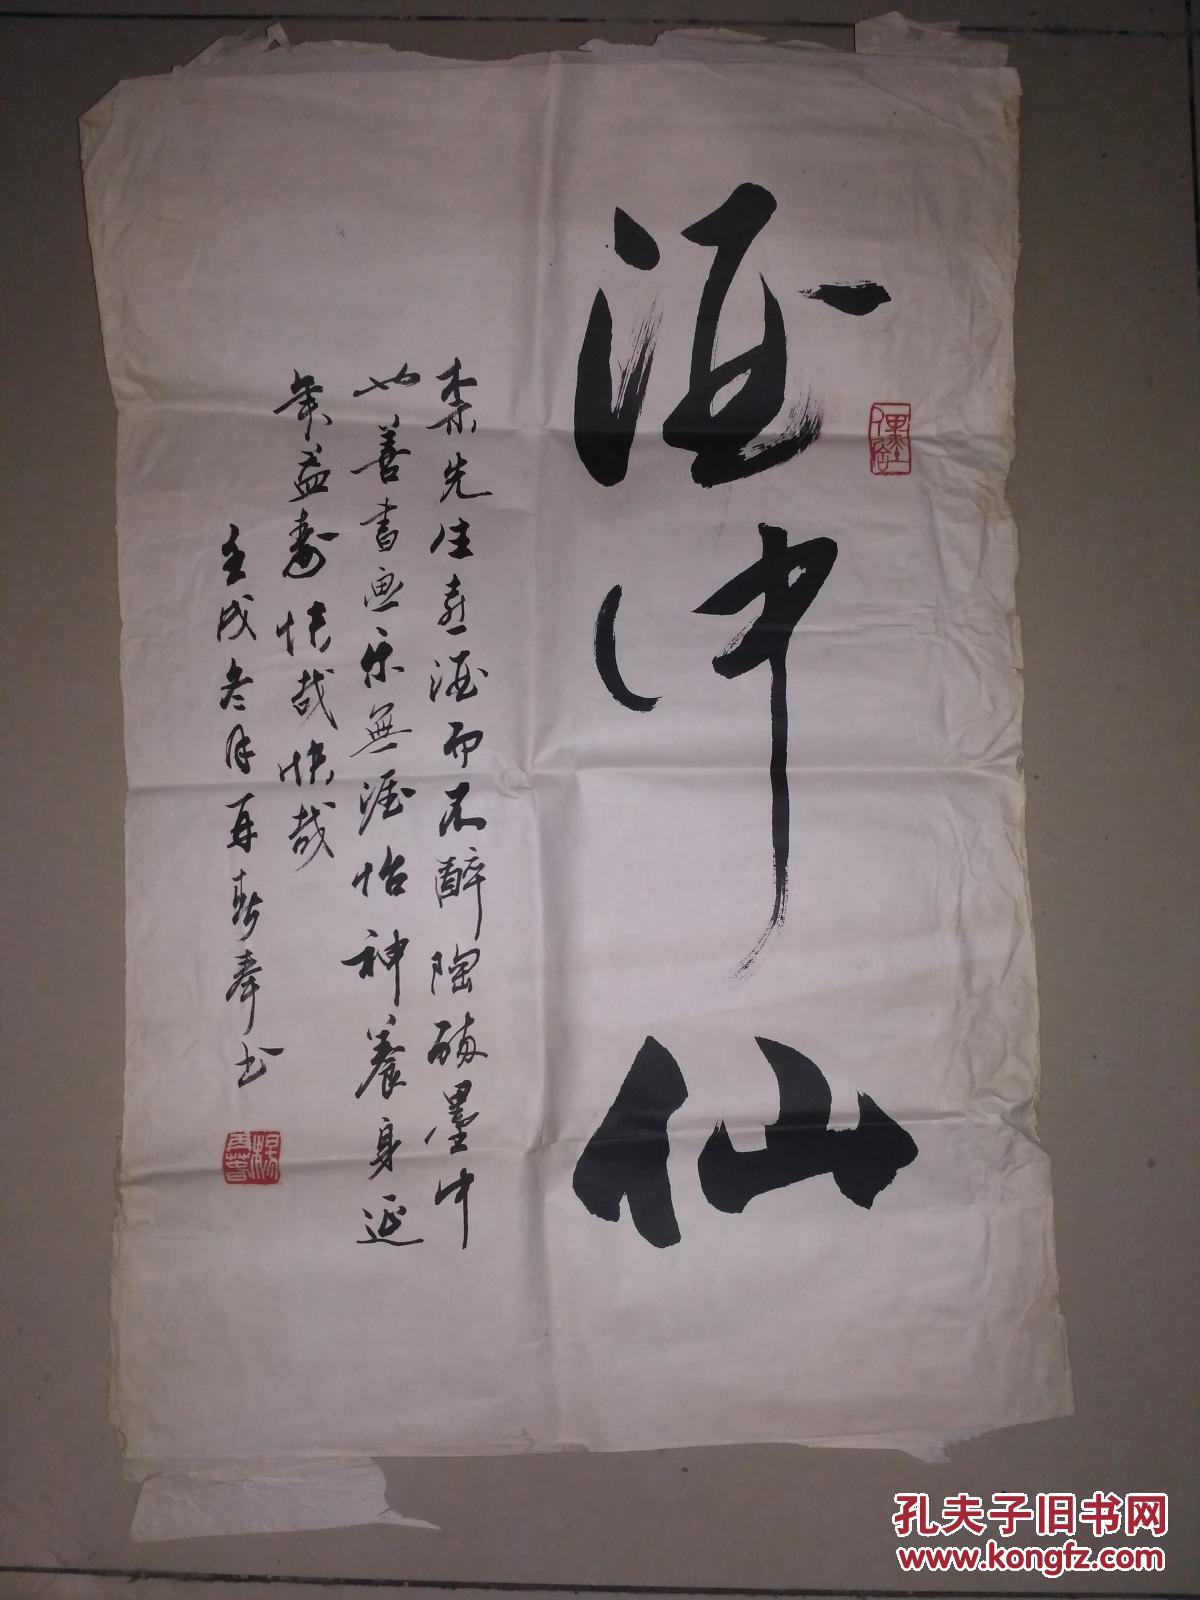 酒中仙
先生喜酒而不醉陶醉墨中
也善書画乐無涯怡神養身延
年益寿快哉快哉
壬戌冬月再新奉书
孔夫子旧书网
www.kongfz.com